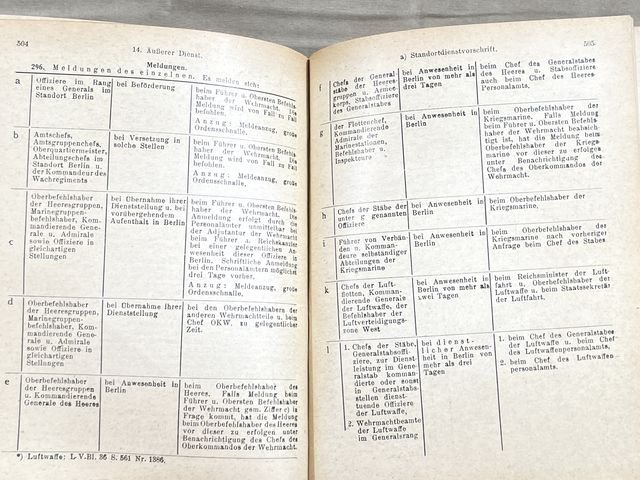 504
14. Äußerer Dienst.
Meldungen.
296. Meldungen des einzelnen. Es melden sich:
a
Offiziere im Rang
eines Generals im
Standort Berlin
bei Beförderung
beim Führer u. Obersten Befehls-
haber der Wehrmacht. Die
Meldung wird von Fall zu Fall
befohlen.
Anzug: Meldeanzug, große
Ordensschnalle.
b
Amtschefs,
Amtsgruppenchefs,
Oberquartiermeister,
Abteilungschefs im
Standort Berlin u.
der Kommandeur des
Wachregiments
bei Versetzung in
solche Stellen
beim Führer u. Obersten Befehls-
haber der Wehrmacht. Die
Meldung wird von Fall zu Fall
befohlen.
Anzug: Meldeanzug, große
Ordensschnalle.
c
Oberbefehlshaber
der Heeresgruppen,
Marinegruppen-
befehlshaber, Kom-
mandierende Gene-
rale u. Admirale
sowie Offiziere in
gleichartigen
Stellungen
bei Übernahme ihrer
Dienststellung u. bei
vorübergehendem
Aufenthalt in Berlin
beim Führer u. Obersten Befehls-
haber der Wehrmacht. Die
Anmeldung erfolgt durch die
Personalämter unmittelbar bei
der Adjutantur der Wehrmacht
beim Führer u. Reichskanzler
bei einer gelegentlichen An-
wesenheit dieser Offiziere in
Berlin. Schriftliche Anmeldung
bei den Personalämtern möglichst
drei Tage vorher.
Anzug: Meldeanzug, große
Ordensschnalle.
d
Oberbefehlshaber
der Heeresgruppen,
Marinegruppen-
befehlshaber, Kom-
mandierende Gene-
rale u. Admirale
sowie Offiziere in
gleichartigen
Stellungen
bei Übernahme ihrer
Dienststellung
bei den Oberbefehlshabern der
anderen Wehrmachtteile u. beim
Chef OKW. zu gelegentlicher
Zeit.
e
Oberbefehlshaber
der Heeresgruppen
u. Kommandierende
Generale des Heeres
bei Anwesenheit in
Berlin
beim Oberbefehlshaber des
Heeres. Falls Meldung beim
Führer u. Obersten Befehlshaber
der Wehrmacht gem. Ziffer c) in
Frage kommt, hat die Meldung
beim Oberbefehlshaber des Heeres
vor dieser zu erfolgen unter
Benachrichtigung des Chefs des
Oberkommandos der Wehrmacht.
*) Luftwaffe: L. V. Bl. 36 S. 561 Nr. 1386.
a) Standortdienstvorschrift.
505
f
Chefs der General-
stäbe der Heeres-
gruppen u. Armee-
korps, Stabsoffiziere
des Generalstabes
bei Anwesenheit in
Berlin von mehr als
drei Tagen
beim Chef des Generalstabes
des Heeres u. Stabsoffiziere
auch beim Chef des Heeres-
Personalamts.
g
der Flottenchef,
Kommandierende
Admirale der
Marinestationen,
Befehlshaber u.
Inspekteure
bei Anwesenheit in
Berlin
beim Oberbefehlshaber der
Kriegsmarine. Falls Meldung
beim Führer u. Obersten Befehls-
haber der Wehrmacht beabsich-
tigt ist, hat die Meldung beim
Oberbefehlshaber der Kriegs-
marine vor dieser zu erfolgen
unter Benachrichtigung des
Chefs des Oberkommandos der
Wehrmacht.
h
Chefs der Stäbe der
unter g genannten
Offiziere
bei Anwesenheit in
Berlin
beim Oberbefehlshaber der
Kriegsmarine.
i
Führer von Verbän-
den u. Komman-
deure selbständiger
Abteilungen der
Kriegsmarine
bei Anwesenheit in
Berlin
beim Oberbefehlshaber der
Kriegsmarine nach vorheriger
Anfrage beim Chef des Stabes
k
Chefs der Luft-
flotten, Komman-
dierende Generale
der Luftwaffe, der
Befehlshaber der
Luftverteidigungs-
zone West
bei Anwesenheit in
Berlin von mehr als
zwei Tagen
beim Reichsminister der Luft-
fahrt u. Oberbefehlshaber der
Luftwaffe u. beim Staatssekretär
der Luftfahrt.
1. Chefs der Stäbe,
Generalstabsoffi-
ziere, zur Dienst-
leistung im Gene-
ralstab komman-
dierte oder sonst
in Generalstabs-
stellen dienst-
tuende Offiziere
der Luftwaffe,
2. Wehrmachtbeamte
der Luftwaffe
im Generalsrang
bei dienst-
licher Anwesen-
heit in Berlin von
mehr als drei
Tagen
1. beim Chef des Generalstabes
der Luftwaffe u. beim Chef
des Luftwaffenpersonalamts.
2. beim Chef des Luftwaffen-
personalamts.